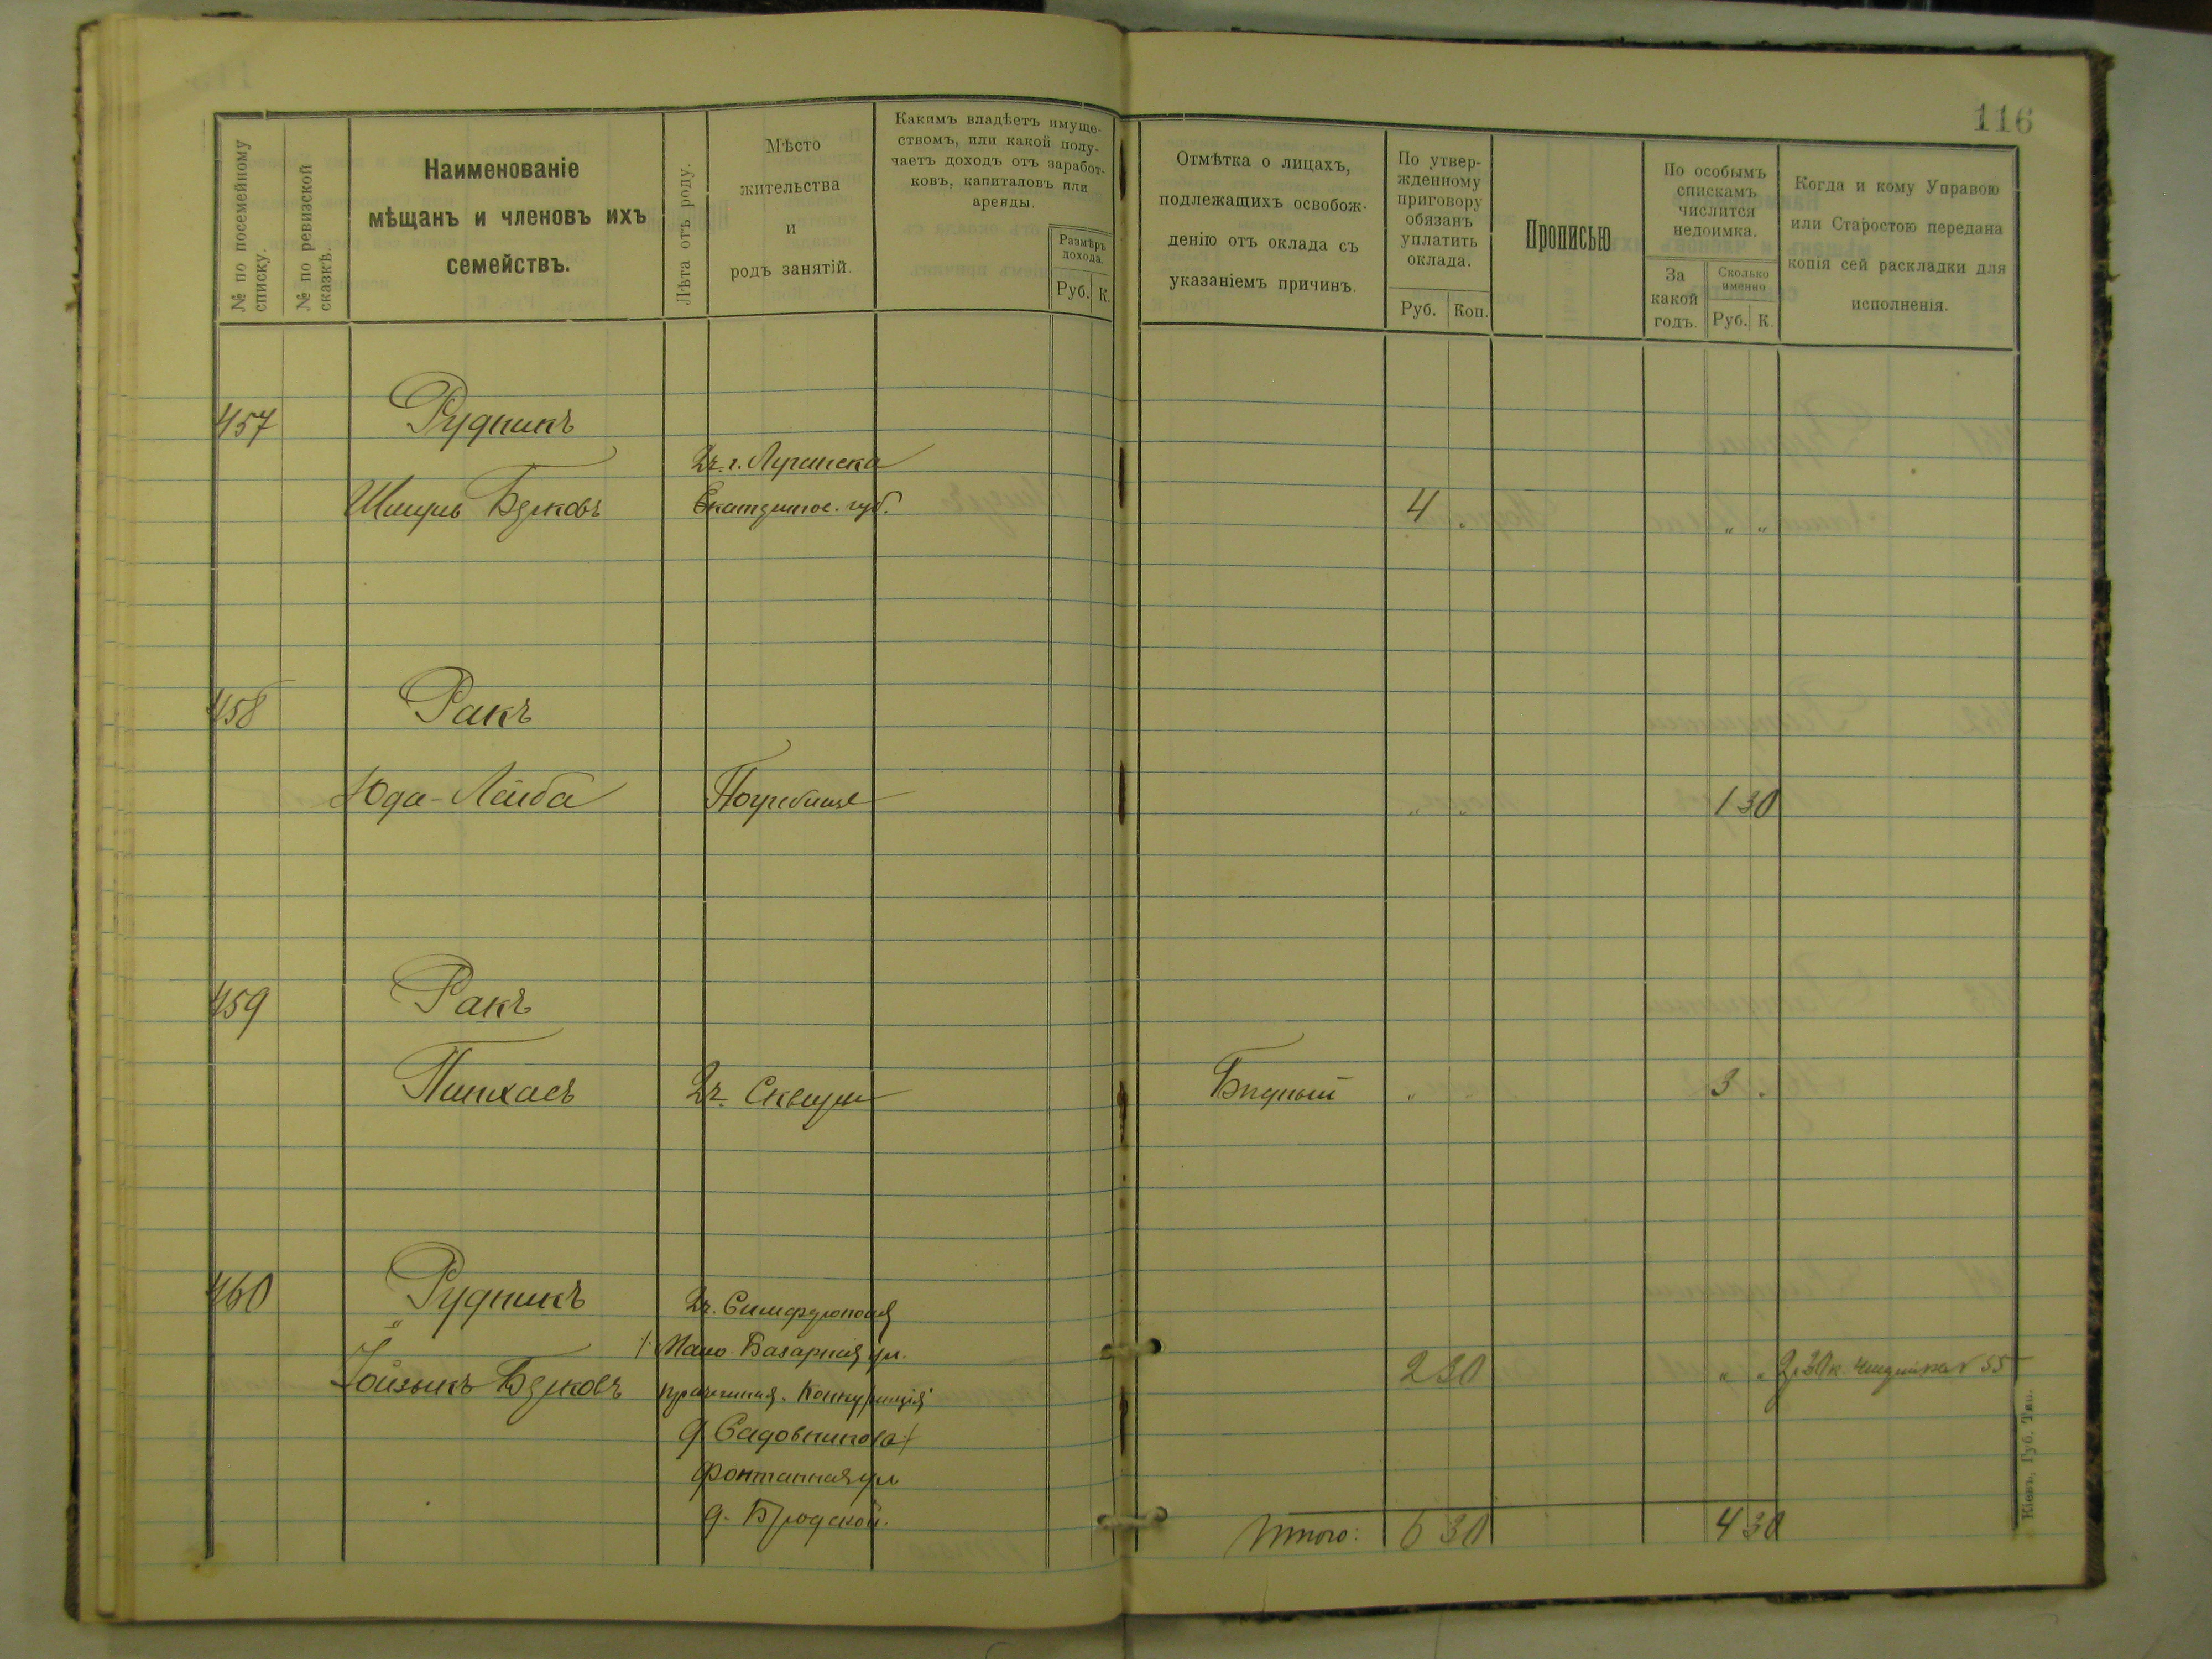 116
№ по посемейному списку.
№ по ревизской сказкѣ.
Наименованіе
мѣщанъ и членовъ ихъ
семействъ.
Лѣта отъ роду.
Мѣсто
жительства
и
родъ занятій.
Какимъ владѣетъ имуще-
ствомъ, или какой полу-
чаетъ доходъ отъ заработ-
ковъ, капиталовъ или
аренды.
Размѣръ
дохода.
Руб. К.
Отмѣтка о лицахъ,
подлежащихъ освобож-
денію отъ оклада съ
указаніемъ причинъ.
По утвер-
жденному
приговору
обязанъ
уплатить
оклада.
Руб. Коп.
Прописью
По особымъ
спискамъ
числится
недоимка.
За
какой
годъ.
Сколько
именно
Руб. К.
Когда и кому Управою
или Старостою передана
копія сей раскладки для
исполненія.
457 Рудникъ
г. Луганска
Шмуль Берковъ 4 „ „ „
458 Ракъ
Юда-Лейба Погребище „ „ 1 30
459 Ракъ
Пинхасъ Сквиры Бидный „ „ 3 „
460 Рудникъ
Симферополя
Мало-Базарная ул.
Іойзыкъ Берковъ Конкуренція 2 30 „ „ 2 р 30 к. № 55
д Садовникова
Фонтанная ул
д. Бродской.
Итого: 6 30 4 30
Кіевъ, Губ. Тип.